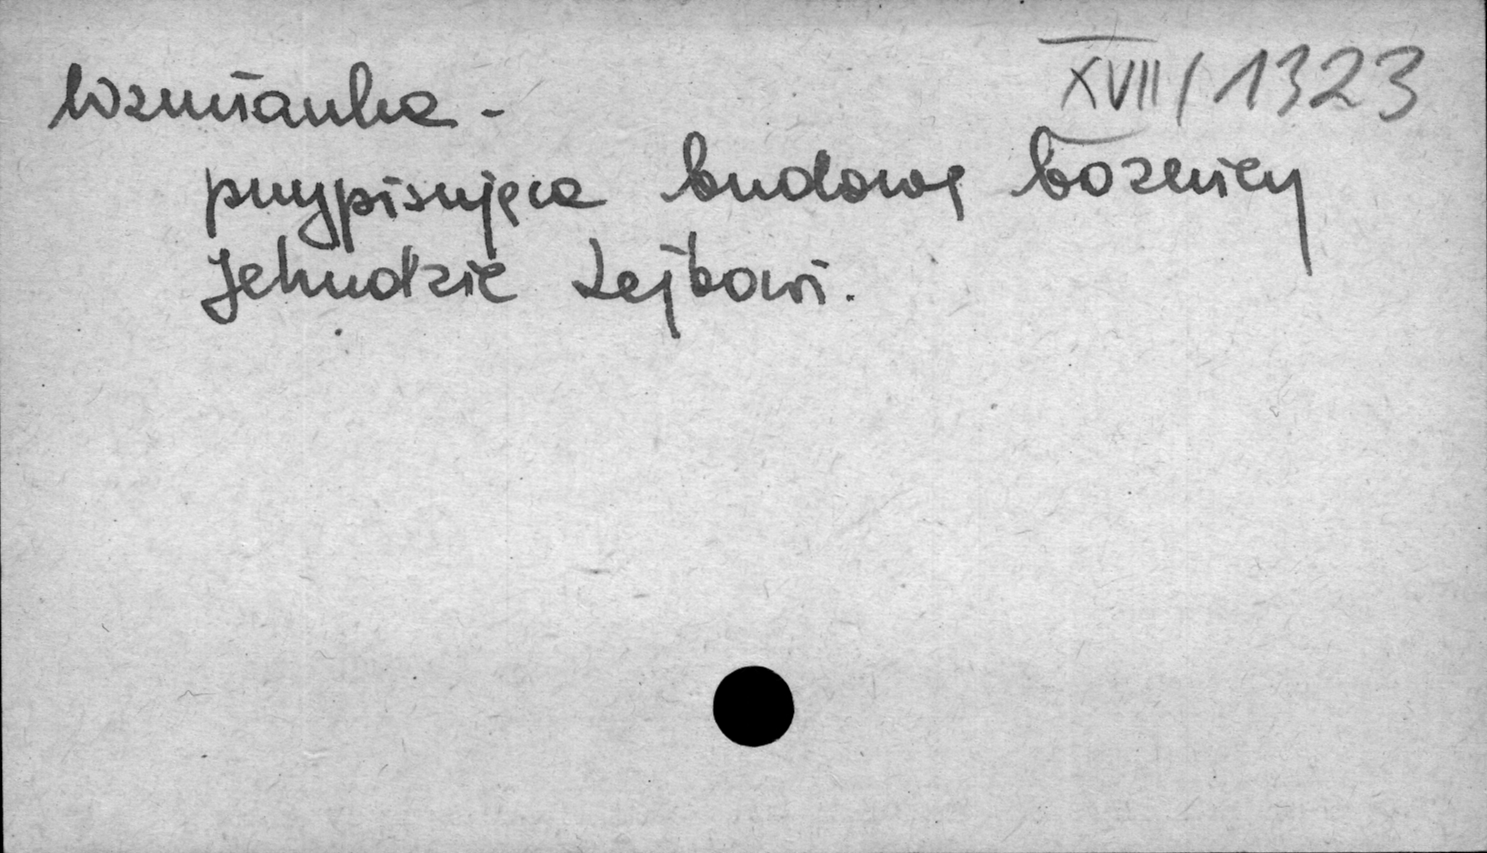 XVII/1323
Wzmianka -
przypisująca budowę bożnicy
Jehudzie Lejbowi.